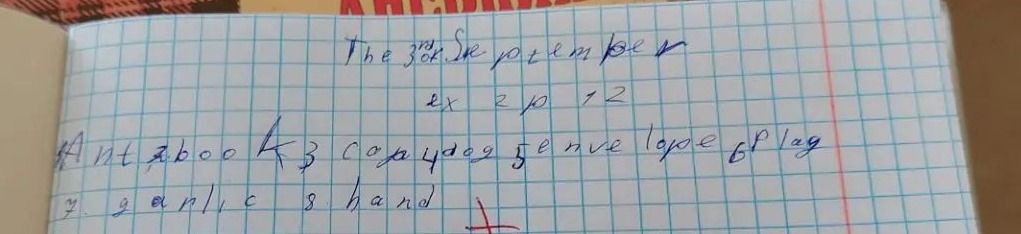 The 3rd of September
ex 2 p 12
1Ant 2book 3 copy 4dog 5envelope 6Plag
7. garlic 8 hand